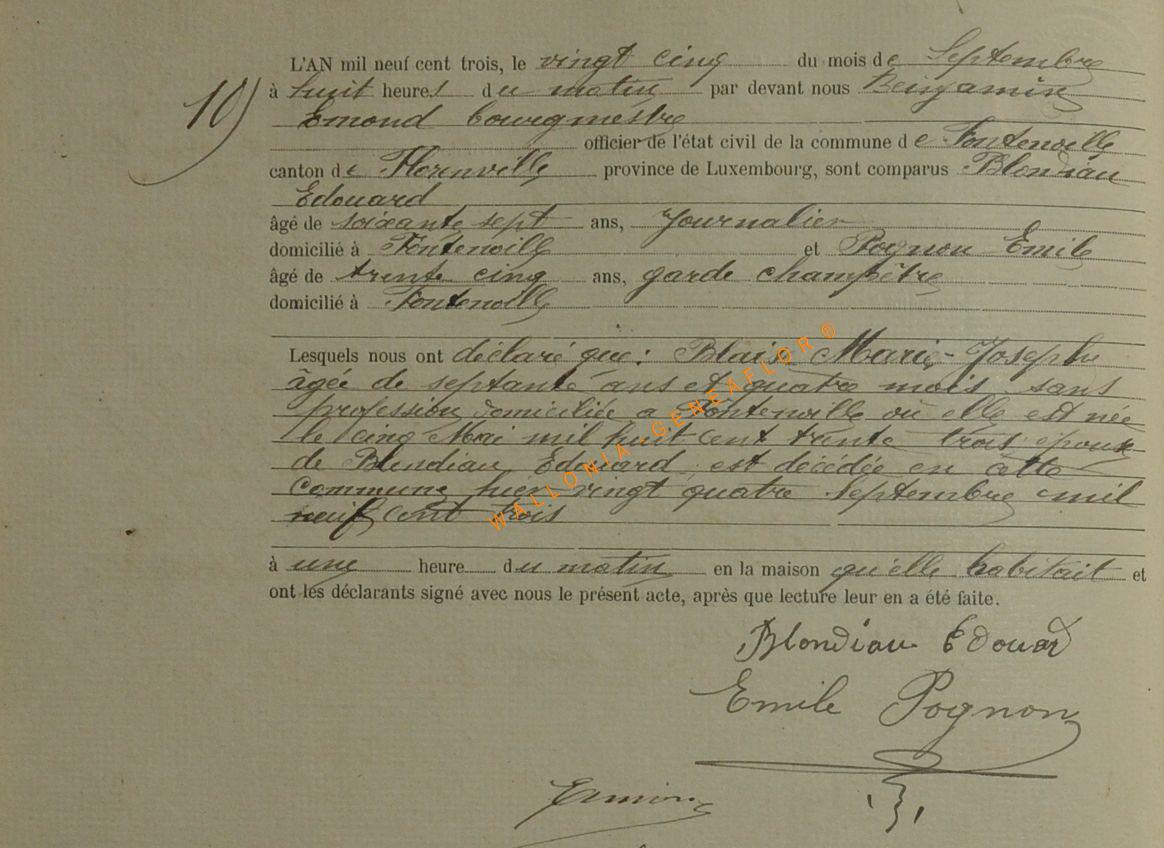 10)
L'AN mil neuf cent trois, le vingt cinq du mois de Septembre
à huit heures du matin par devant nous Benjamin
Emond bourgmestre
officier de l'état civil de la commune de Fontenoille
canton de Florenville province de Luxembourg, sont comparus Blondiau
Edouard
âgé de soixante sept ans, Journalier
domicilié à Fontenoille et Pognon Emile
âgé de trente cinq ans, garde champêtre
domicilié à Fontenoille
Lesquels nous ont déclaré que: Blaise Marie-Josephe
âgée de septante ans et quatre mois sans
profession domiciliée a Fontenoille où elle est née
le cinq Mai mil huit cent trente trois épouse
de Blondiau Edouard est décédée en cette
commune hier vingt quatre Septembre mil
neuf cent trois
à une heure du matin en la maison qu'elle habitait et
ont les déclarants signé avec nous le présent acte, après que lecture leur en a été faite.
Blondiau Edouard
Emile Pognon
WALLONIA GENEAFLOR®